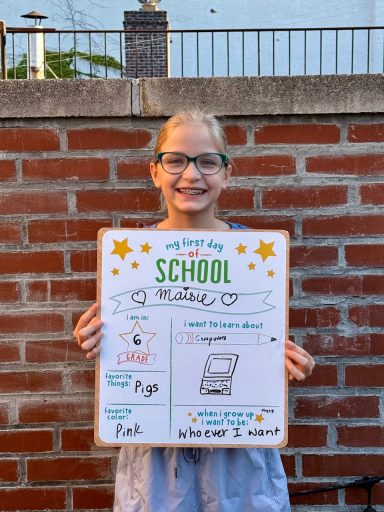 my first day
of
SCHOOL
Maisie
i am in:
6
GRADE
i want to learn about
Computers
favorite
things: Pigs
favorite
color:
Pink
when i grow up
i want to be:
Whoever I want